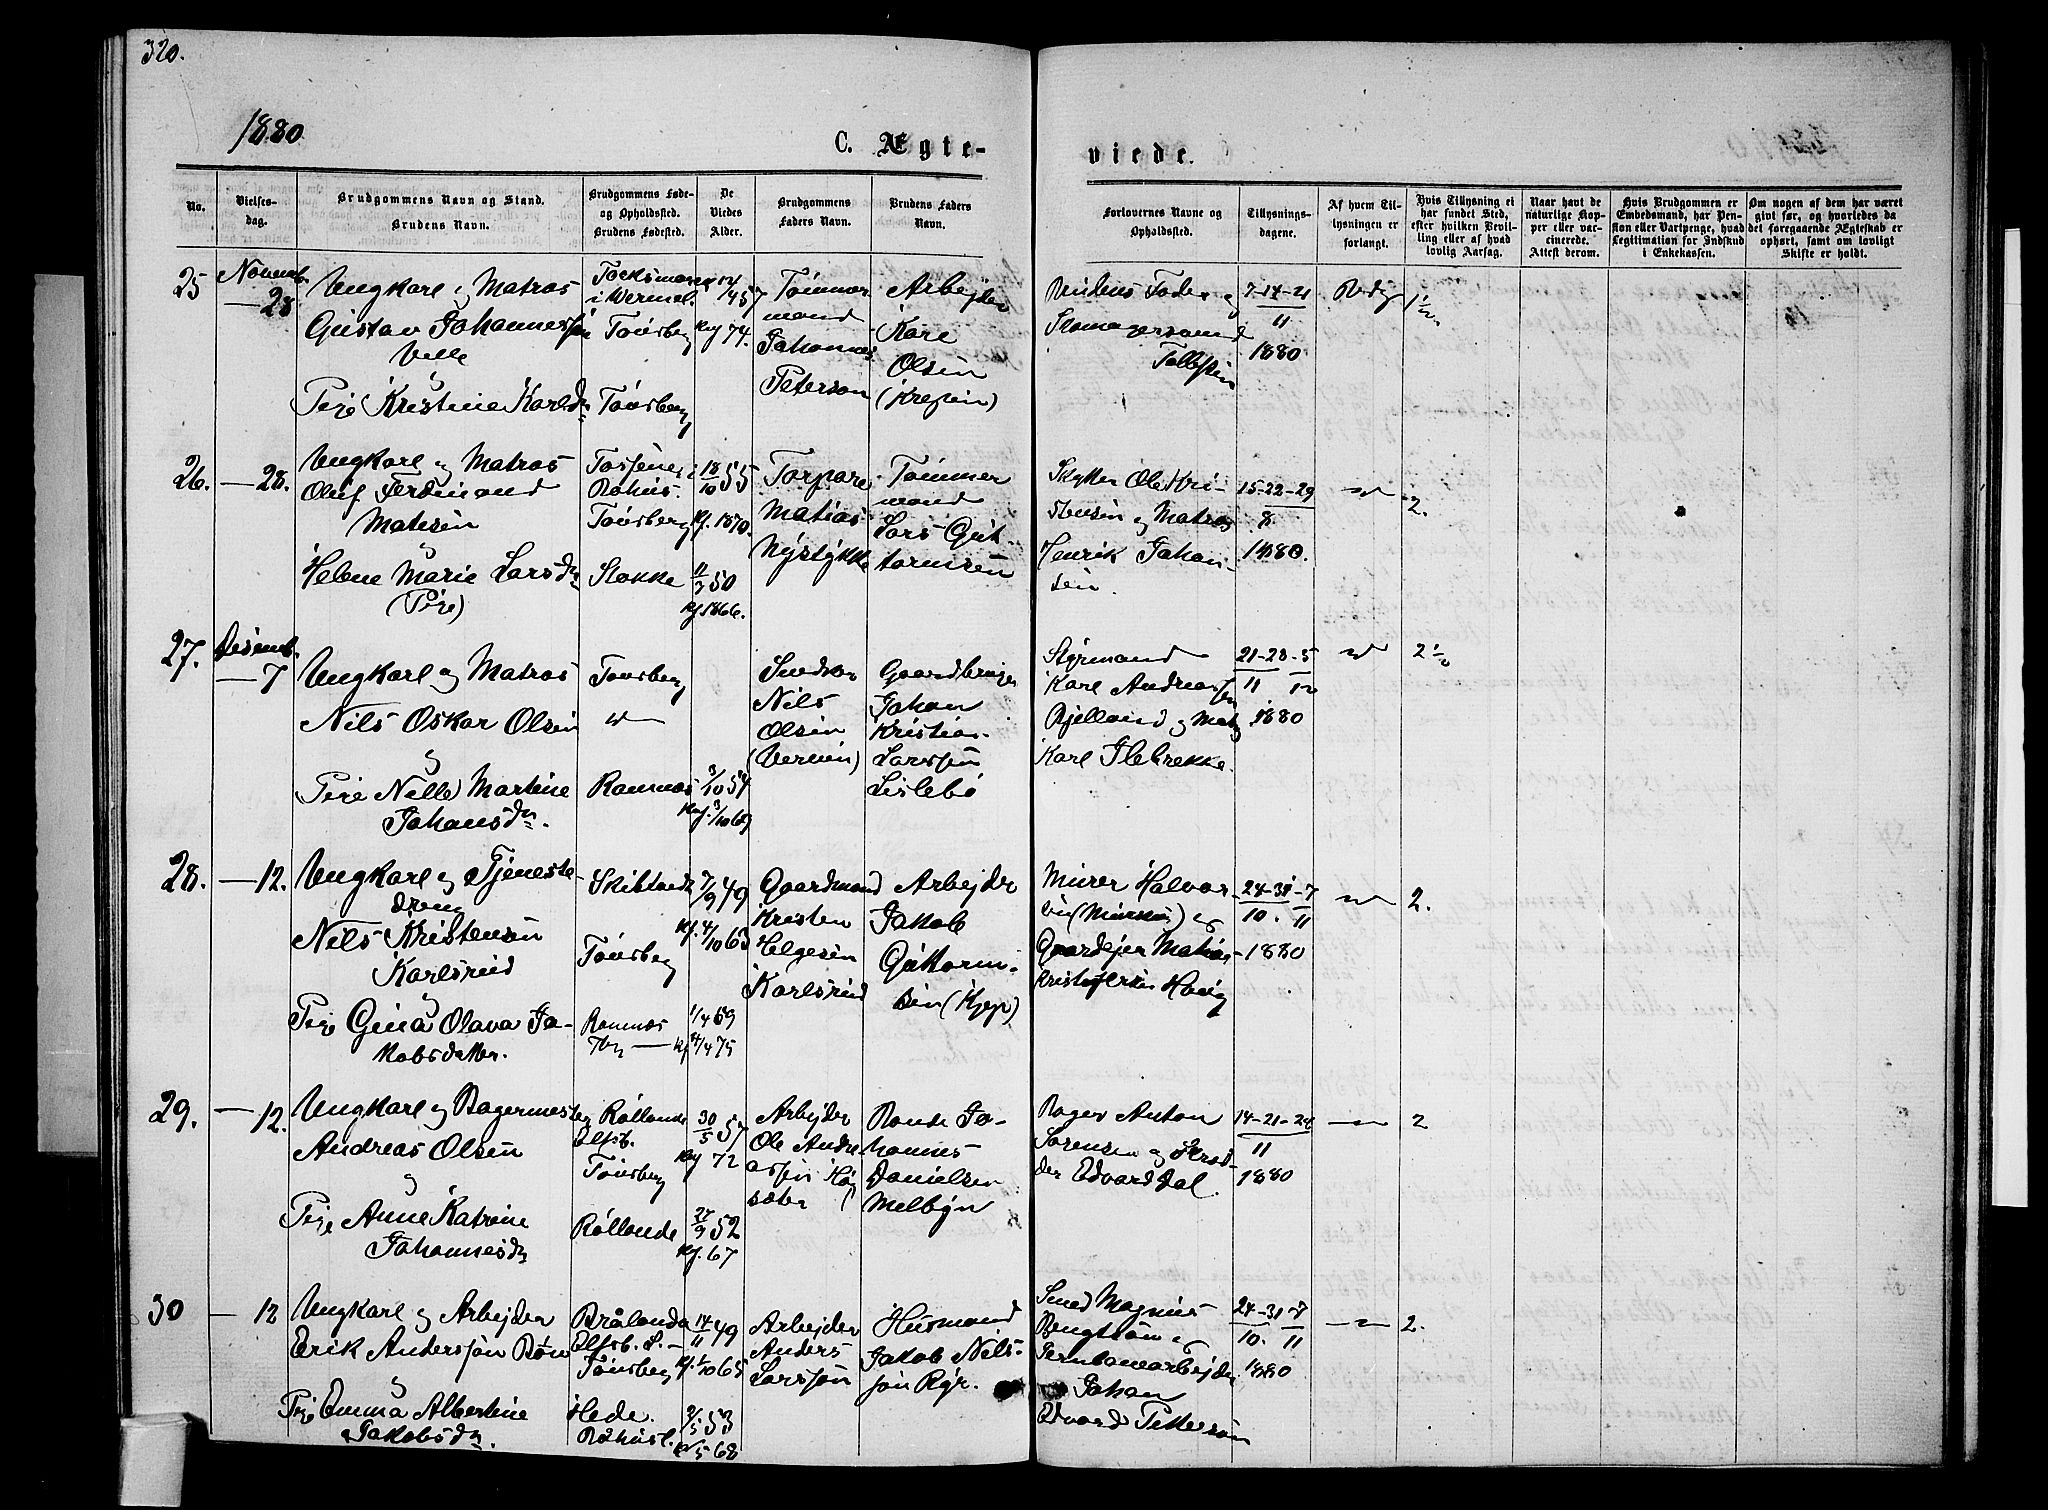 320.
1880
C. Ægte-
viede.
No.
Vielses-
dag.
Brudgommens Navn og Stand.
Brudens Navn.
Brudgommens Føde-
og Opholdssted.
Brudens Fødested.
De
Viedes
Alder.
Brudgommens
Faders Navn.
Brudens Faders
Navn.
Forlovernes Navne og
Opholdssted.
Tillysnings-
dagene.
Af hvem Til-
lysningen er
forlangt.
Hvis Tillysning ei
har fundet Sted,
efter hvilken Bevil-
ling eller af hvad
lovlig Aarsag.
Naar havt de
naturlige Kop-
per eller vac-
cinerede.
Attest derom.
Hvis Brudgommen er
Embedsmand, har Pen-
sion eller Vartpenge, hvad
Legitimation for Indskud
i Enkekassen.
Om nogen af dem har været
givt før, og hvorledes da
det foregaaende Ægteskab er
ophørt, samt om lovligt
Skifte er holdt.
25
Novemb.
—28
Ungkarl og Matros
Gustav Johannessøn
Velle
Pige Kristine Karlsdr
i Wermel.
Tønsberg
Tønsberg
57
Kf 74.
Tømmer
mand
Johannes
Peterson
Arbejder
Karl
Olsen
Brudens Fader og
Skomagersvend
7-14-21
11
1880
Brudg
1½
26.
—28.
Ungkarl og Matros
Oluf Ferdinand
Matesen
&
Helene Marie Larsdr
(Pige)
Bohus.
Tønsberg
Stokke
18
10 55
Kf. 1870.
11
3 50
Kf 1866.
Torpare
Matias
Nystykke
Tømmer
mand
Lars Gut
tormsen
Ole Kri-
stensen og Matros
Henrik Johan-
sen.
15-22-29
8
1880.
2.
27.
Desemb.
—7
Ungkarl og Matros
Nils Oskar Olsen
&
Pige Nille Martine
Johansdr.
Tønsberg
Ramnæs
3/10 54
Kf. 3/10 69
Nils
Olsen
Gaardbruger
Johan
Kristian
Larssøn
Lislebø
Styrmand
Karl Andreassen
Kjelland og Mat.
Karl Ilebrekke.
21-28-5
11 12
1880
2½
28.
—12.
Ungkarl og Tjeneste-
dreng
Nils Kristensøn
Karlsrud
&
Pige Gina Olava Ja-
kobsdatter.
Tønsberg
Ramnæs
Tbg
7/9 49
Kf. 4/10 63
1/4 59
Kf 4/4 75
Gaardmand
Kristen
Helgesen
Karlsrud
Arbejder
Jakob
Guttorm-
sen
Murer Halvor-
sen
Gaardejer Matias
Kristofersen
24-31-7
10. 11
1880
2.
29.
—12.
Ungkarl og Bagermester
Andreas Olsen
&
Pige Anne Katrine
Johannesdr
Elfsb.
Tønsberg
30
5 57
Kf 72
27
9 52
Kf. 67
Arbejder
Ole Andre
assen
Bonde Jo-
hannes
Danielsen
Melbyn
Bager Anton
Sørensen og Skræd-
der Edvard Dal.
14-21-28
11
1880
2
30
—12
Ungkarl og Arbejder
Erik Anderssøn Røn
&
Pige Emma Albertine
Jakobsdr.
Elfsb. L.—
Tønsberg
Hede.
Bohusl.
14
11 49
Kf. 1/10 65
53
68
Arbejder
Anders
Larssøn
Husmand
Jakob Nils-
søn
Smed Magnus
Bengtsøn og
Jernbanearbejder
Johan
Edvard Pettersøn
24-31-7
10. 11
1880
2.